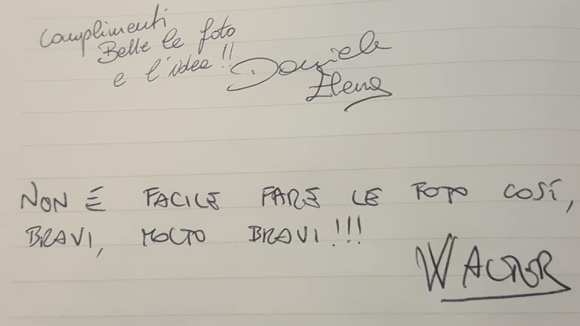 Complimenti
Belle le foto
e l'idea!!
Daniele
Elena
NON È FACILE FARE LE FOTO COSÍ,
BRAVI, MOLTO BRAVI!!!
WALTER